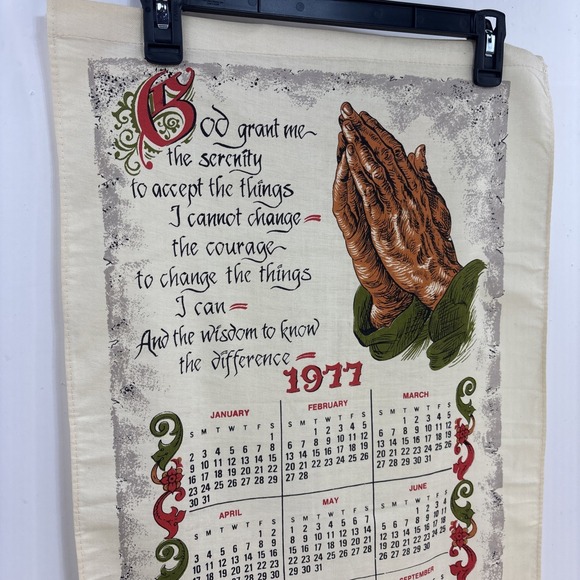 God grant me
the serenity
to accept the things
I cannot change
the courage
to change the things
I can
And the wisdom to know
the difference
1977
JANUARY
S M T W T F S
1
2 3 4 5 6 7 8
9 10 11 12 13 14 15
16 17 18 19 20 21 22
23 24 25 26 27 28 29
30 31
FEBRUARY
S M T W T F S
1 2 3 4 5
6 7 8 9 10 11 12
13 14 15 16 17 18 19
20 21 22 23 24 25 26
27 28
MARCH
S M T W T F S
1 2 3 4 5
6 7 8 9 10 11 12
13 14 15 16 17 18 19
20 21 22 23 24 25 26
27 28 29 30 31
APRIL
S M T W T F S
1 2
3 4 5 6 7 8 9
MAY
S M T W T F S
1 2 3 4 5 6 7
8 9 10 11 12 13 14
15 16 17 18 19 20 21
JUNE
S M T W T F S
1 2 3 4
5 6 7 8 9 10 11
12 13 14 15 16 17 18
19 20 21 22 23 24 25
26 27 28 29 30
SEPTEMBER